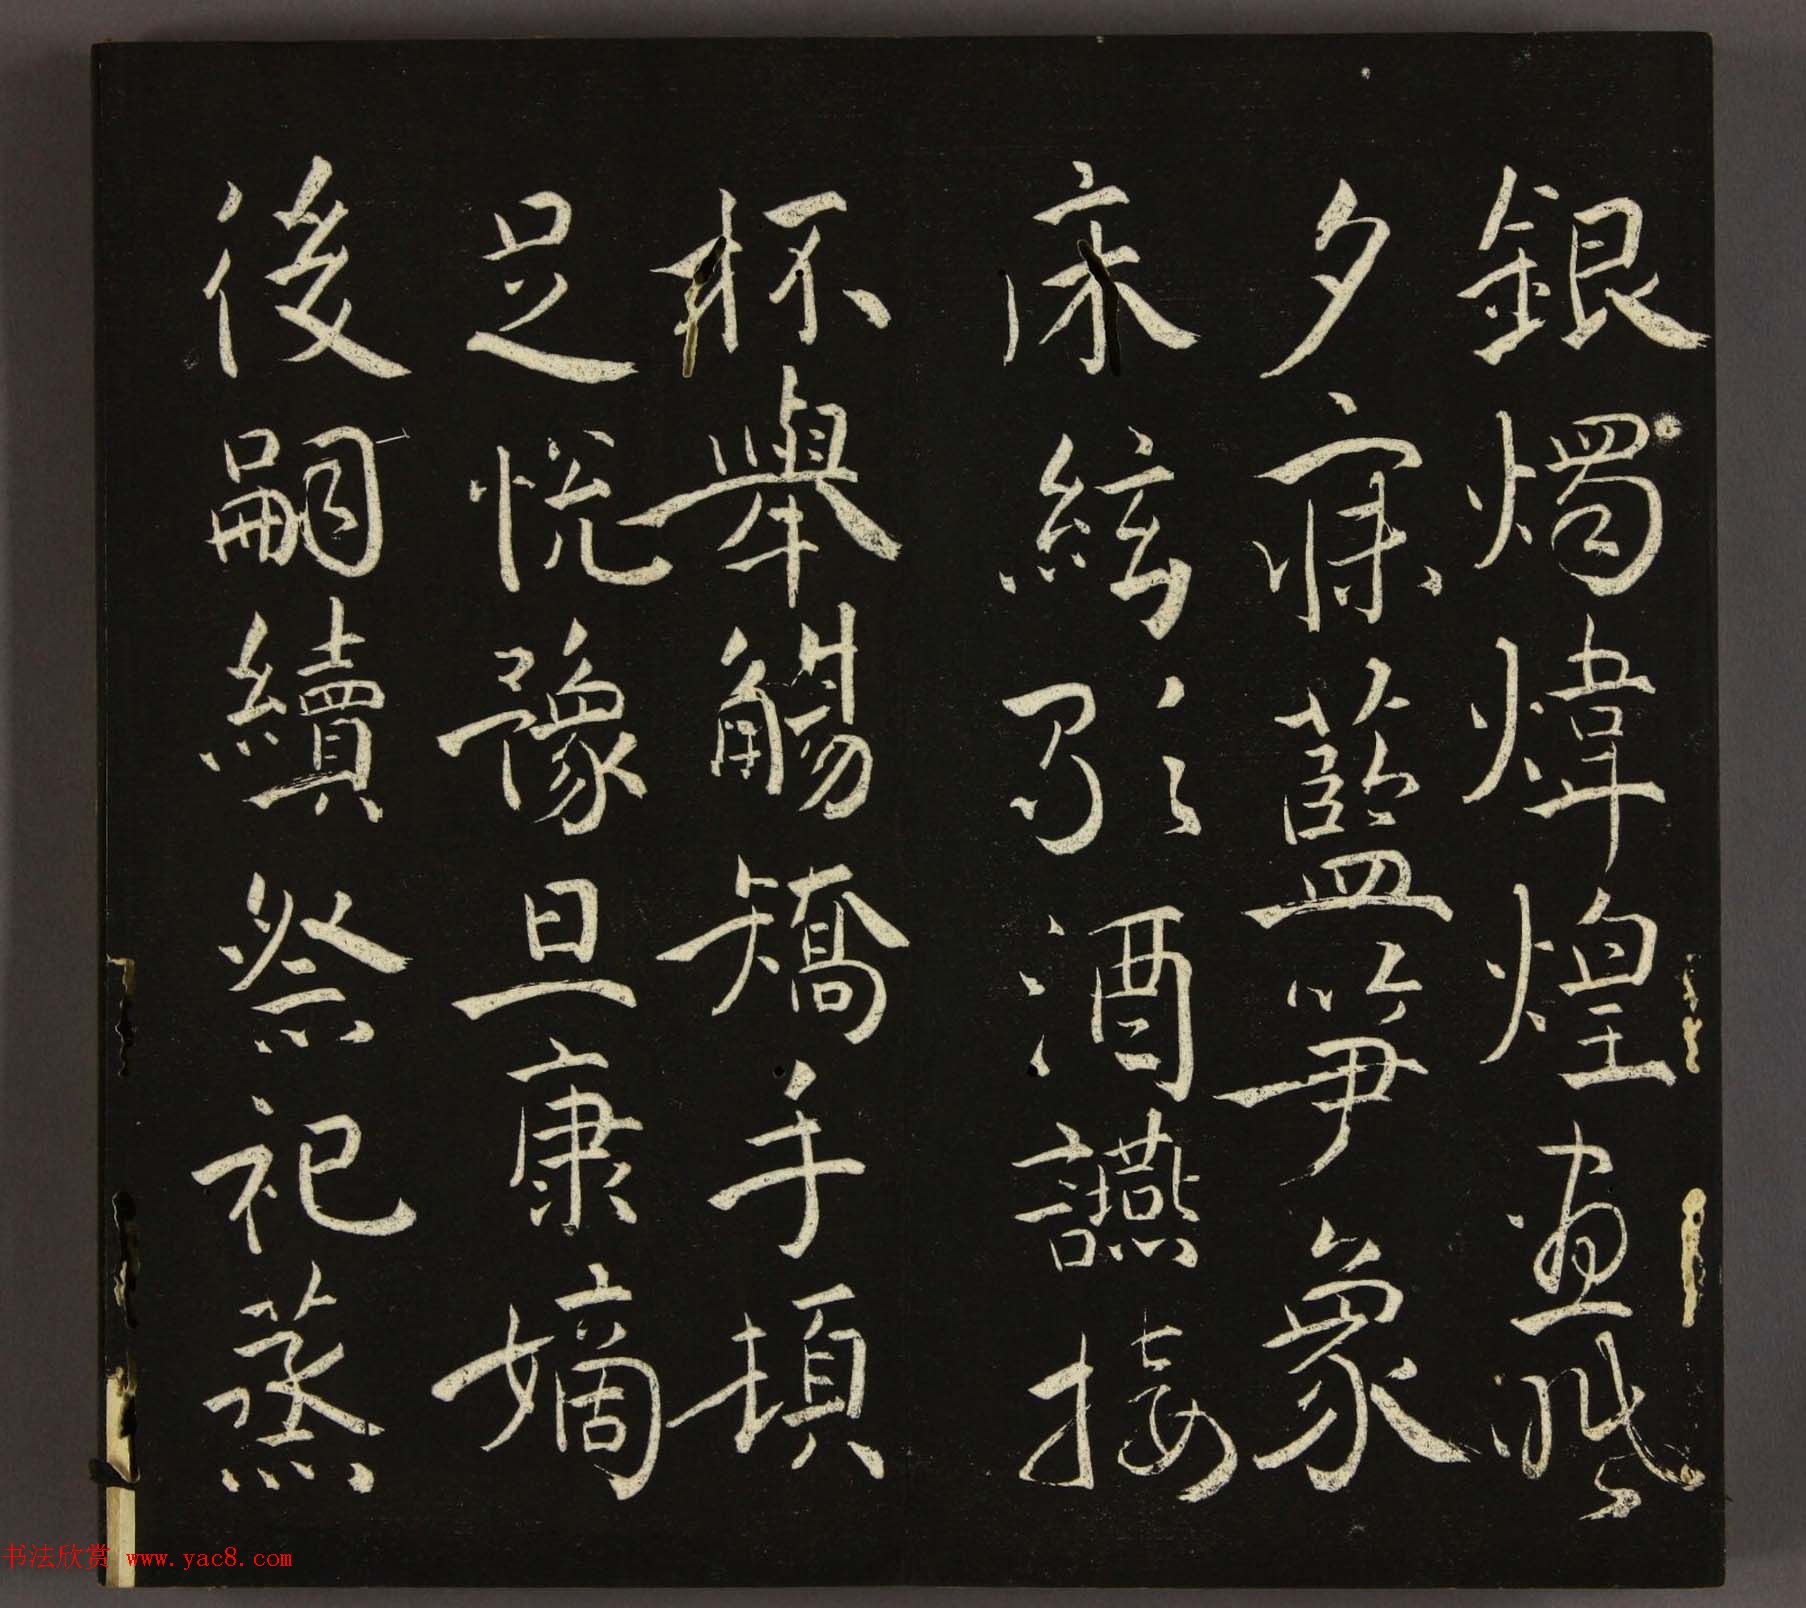 銀燭煒煌晝眠
夕寐藍笋象
床絃歌酒讌接
杯舉觴矯手頓
足悅豫且康嫡
後嗣續祭祀蒸
书法欣赏 www.yac8.com